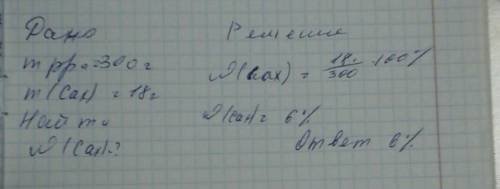 Дано
m рр = 300 г
m(Сах) = 18 г
Найти
ω(Сах)?
Решение
ω(Сах) = 18 / 300 · 100%
ω(Сах) = 6%
Ответ 6%